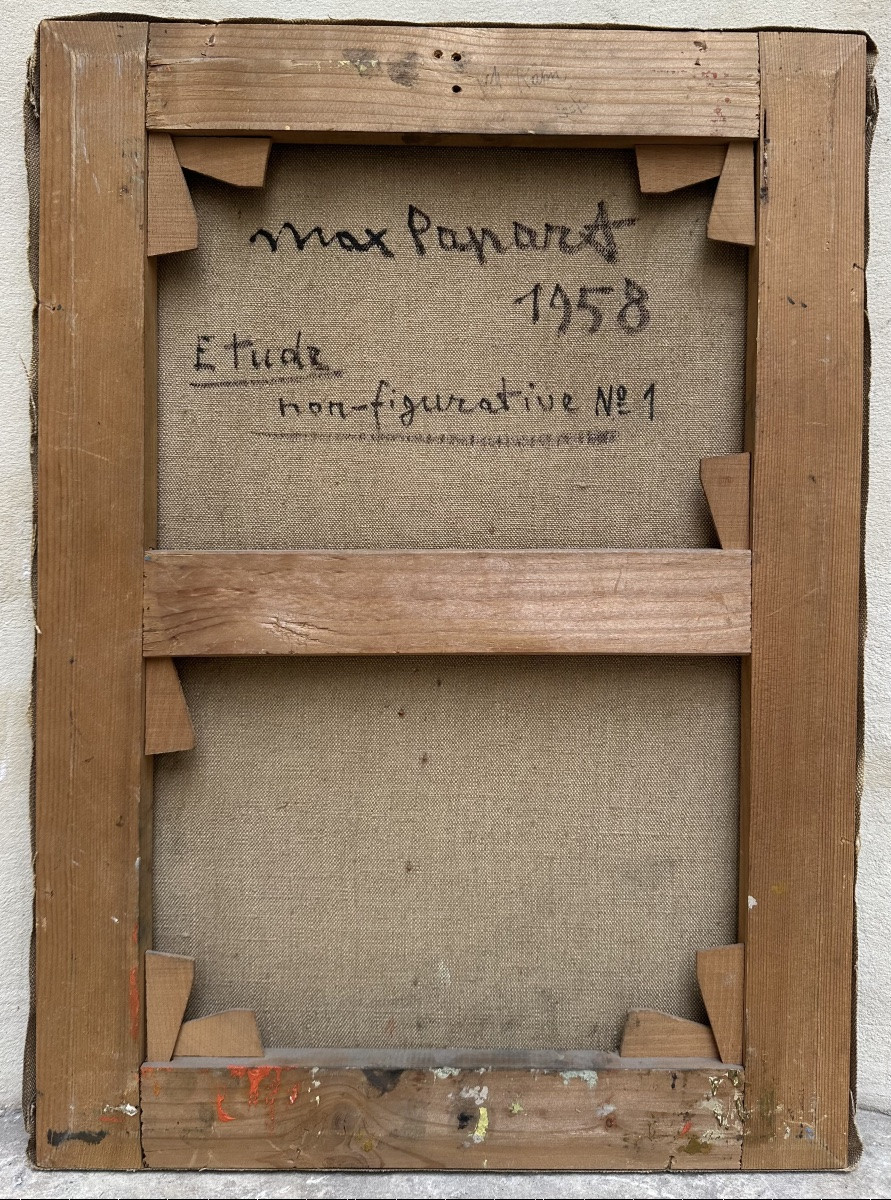 Max Papart
1958
Etude
non-figurative Nº 1